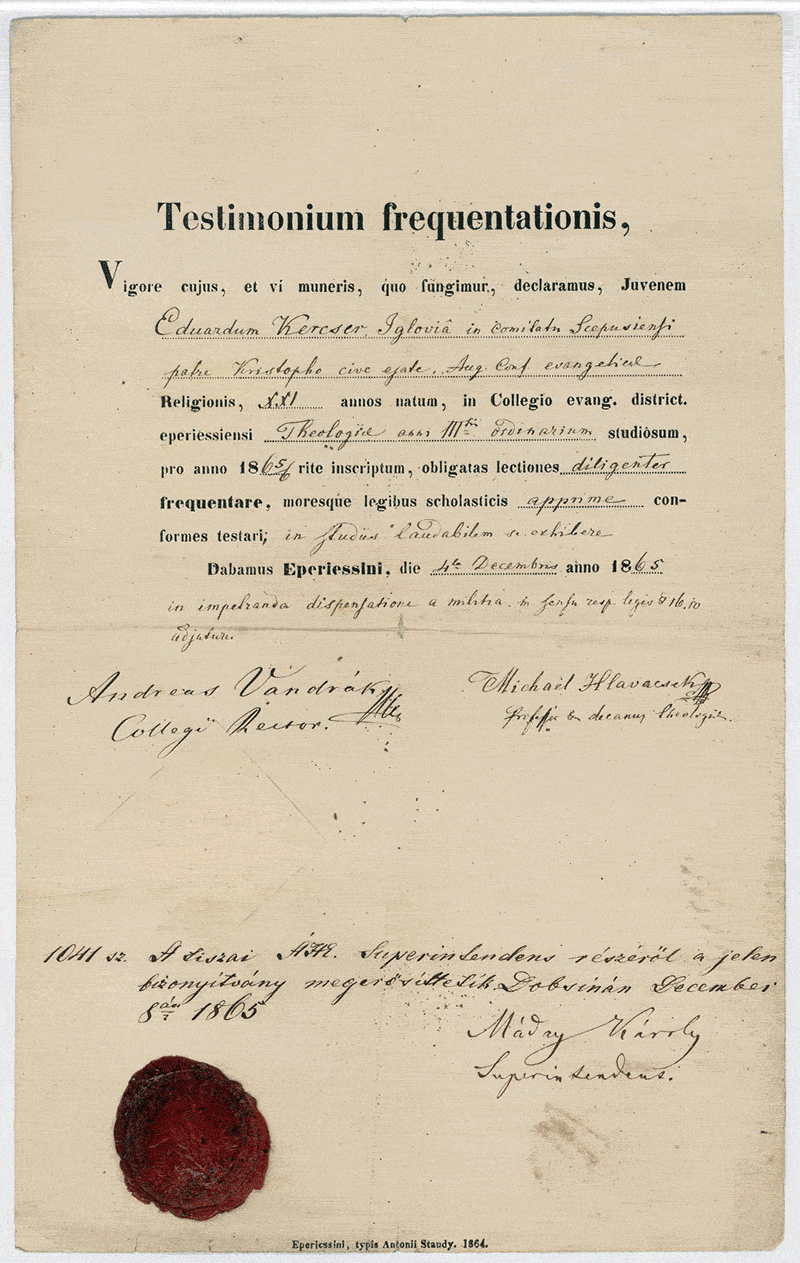 Testimonium frequentationis,
Vigore cujus, et vi muneris, quo fungimur, declaramus, Juvenem
Eduardum Kercser, Igloviâ in Comitatu Scepusiensi
patre Kristopho cive ejate, Aug. Conf. evangelicæ
Religionis, XXI annos natum, in Collegio evang. district.
eperiessiensi Theologiæ anni IIItii ordinarium studiôsum,
pro anno 1865/6 rite inscriptum, obligatas lectiones diligenter
frequentare, moresque legibus scholasticis apprime con-
formes testari; in studiis laudabilem se exhibere
Dabamus Eperiessini, die 4ta Decembris anno 1865
in impetranda dispensatione a militia, in sensu resp. legis § 16.
Andreas Vandrák
Collegii Rector.
Michaël Hlavacsek
Professor & decanus theologiæ.
1041 sz. A tiszai ÁHE. Superintendens részéről a jelen
bizonyítvány megerősíttetik. Dobsinán December
8án 1865
Máday Károly
Superintendens.
Eperiessini, typis Antonii Staudy. 1864.